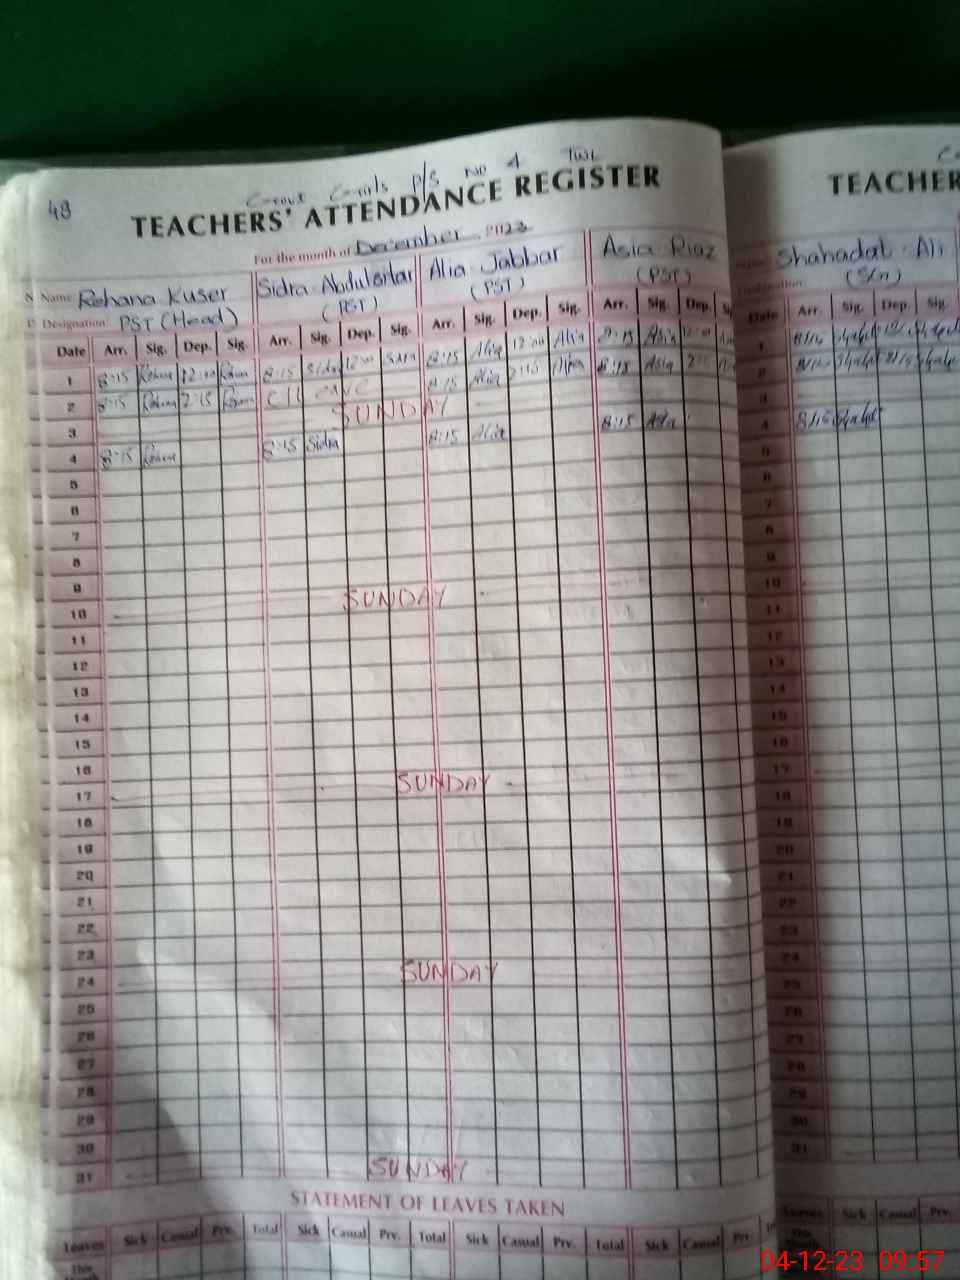 49
Govt Girls P/S No 4 TWL
TEACHERS' ATTENDANCE REGISTER
For the month of December 2023
Name Rehana Kuser Sidra Abdulsttar Alia Jabbar Asia Riaz
Designation: PST (Head) (PST) (PST) (PST)
Date Arr. Sig. Dep. Sig. Arr. Sig. Dep. Sig. Arr. Sig. Dep. Sig. Arr. Sig. Dep.
1 8:15 12:00 8:15 Sidra 12:00 Sidra 8:15 Alia 12:00 Alia 8:15 Asia 12:00
2 8:15 2:15 8:15 Alia 2:15 Alia 8:15 Asia
3 SUNDAY
4 8:15 8:15 Sidra 8:15 Alia 8:15 Asia
5
6
7
8
9
10 SUNDAY
11
12
13
14
15
16
17 SUNDAY
18
19
20
21
22
23
24 SUNDAY
25
26
27
28
29
30
31 SUNDAY
STATEMENT OF LEAVES TAKEN
Leaves Sick Casual Prv. Total Sick Casual Prv. Total Sick Casual Prv. Total Sick Casual Prv.
This
TEACHER
Shahadat Ali
Date Arr. Sig. Dep. Sig.
1
2
3
4
5
6
7
8
9
10
11
12
13
14
15
16
17
18
19
20
21
22
23
24
25
26
27
28
29
30
31
Leaves Sick Casual Prv.
This
04-12-23 09:57